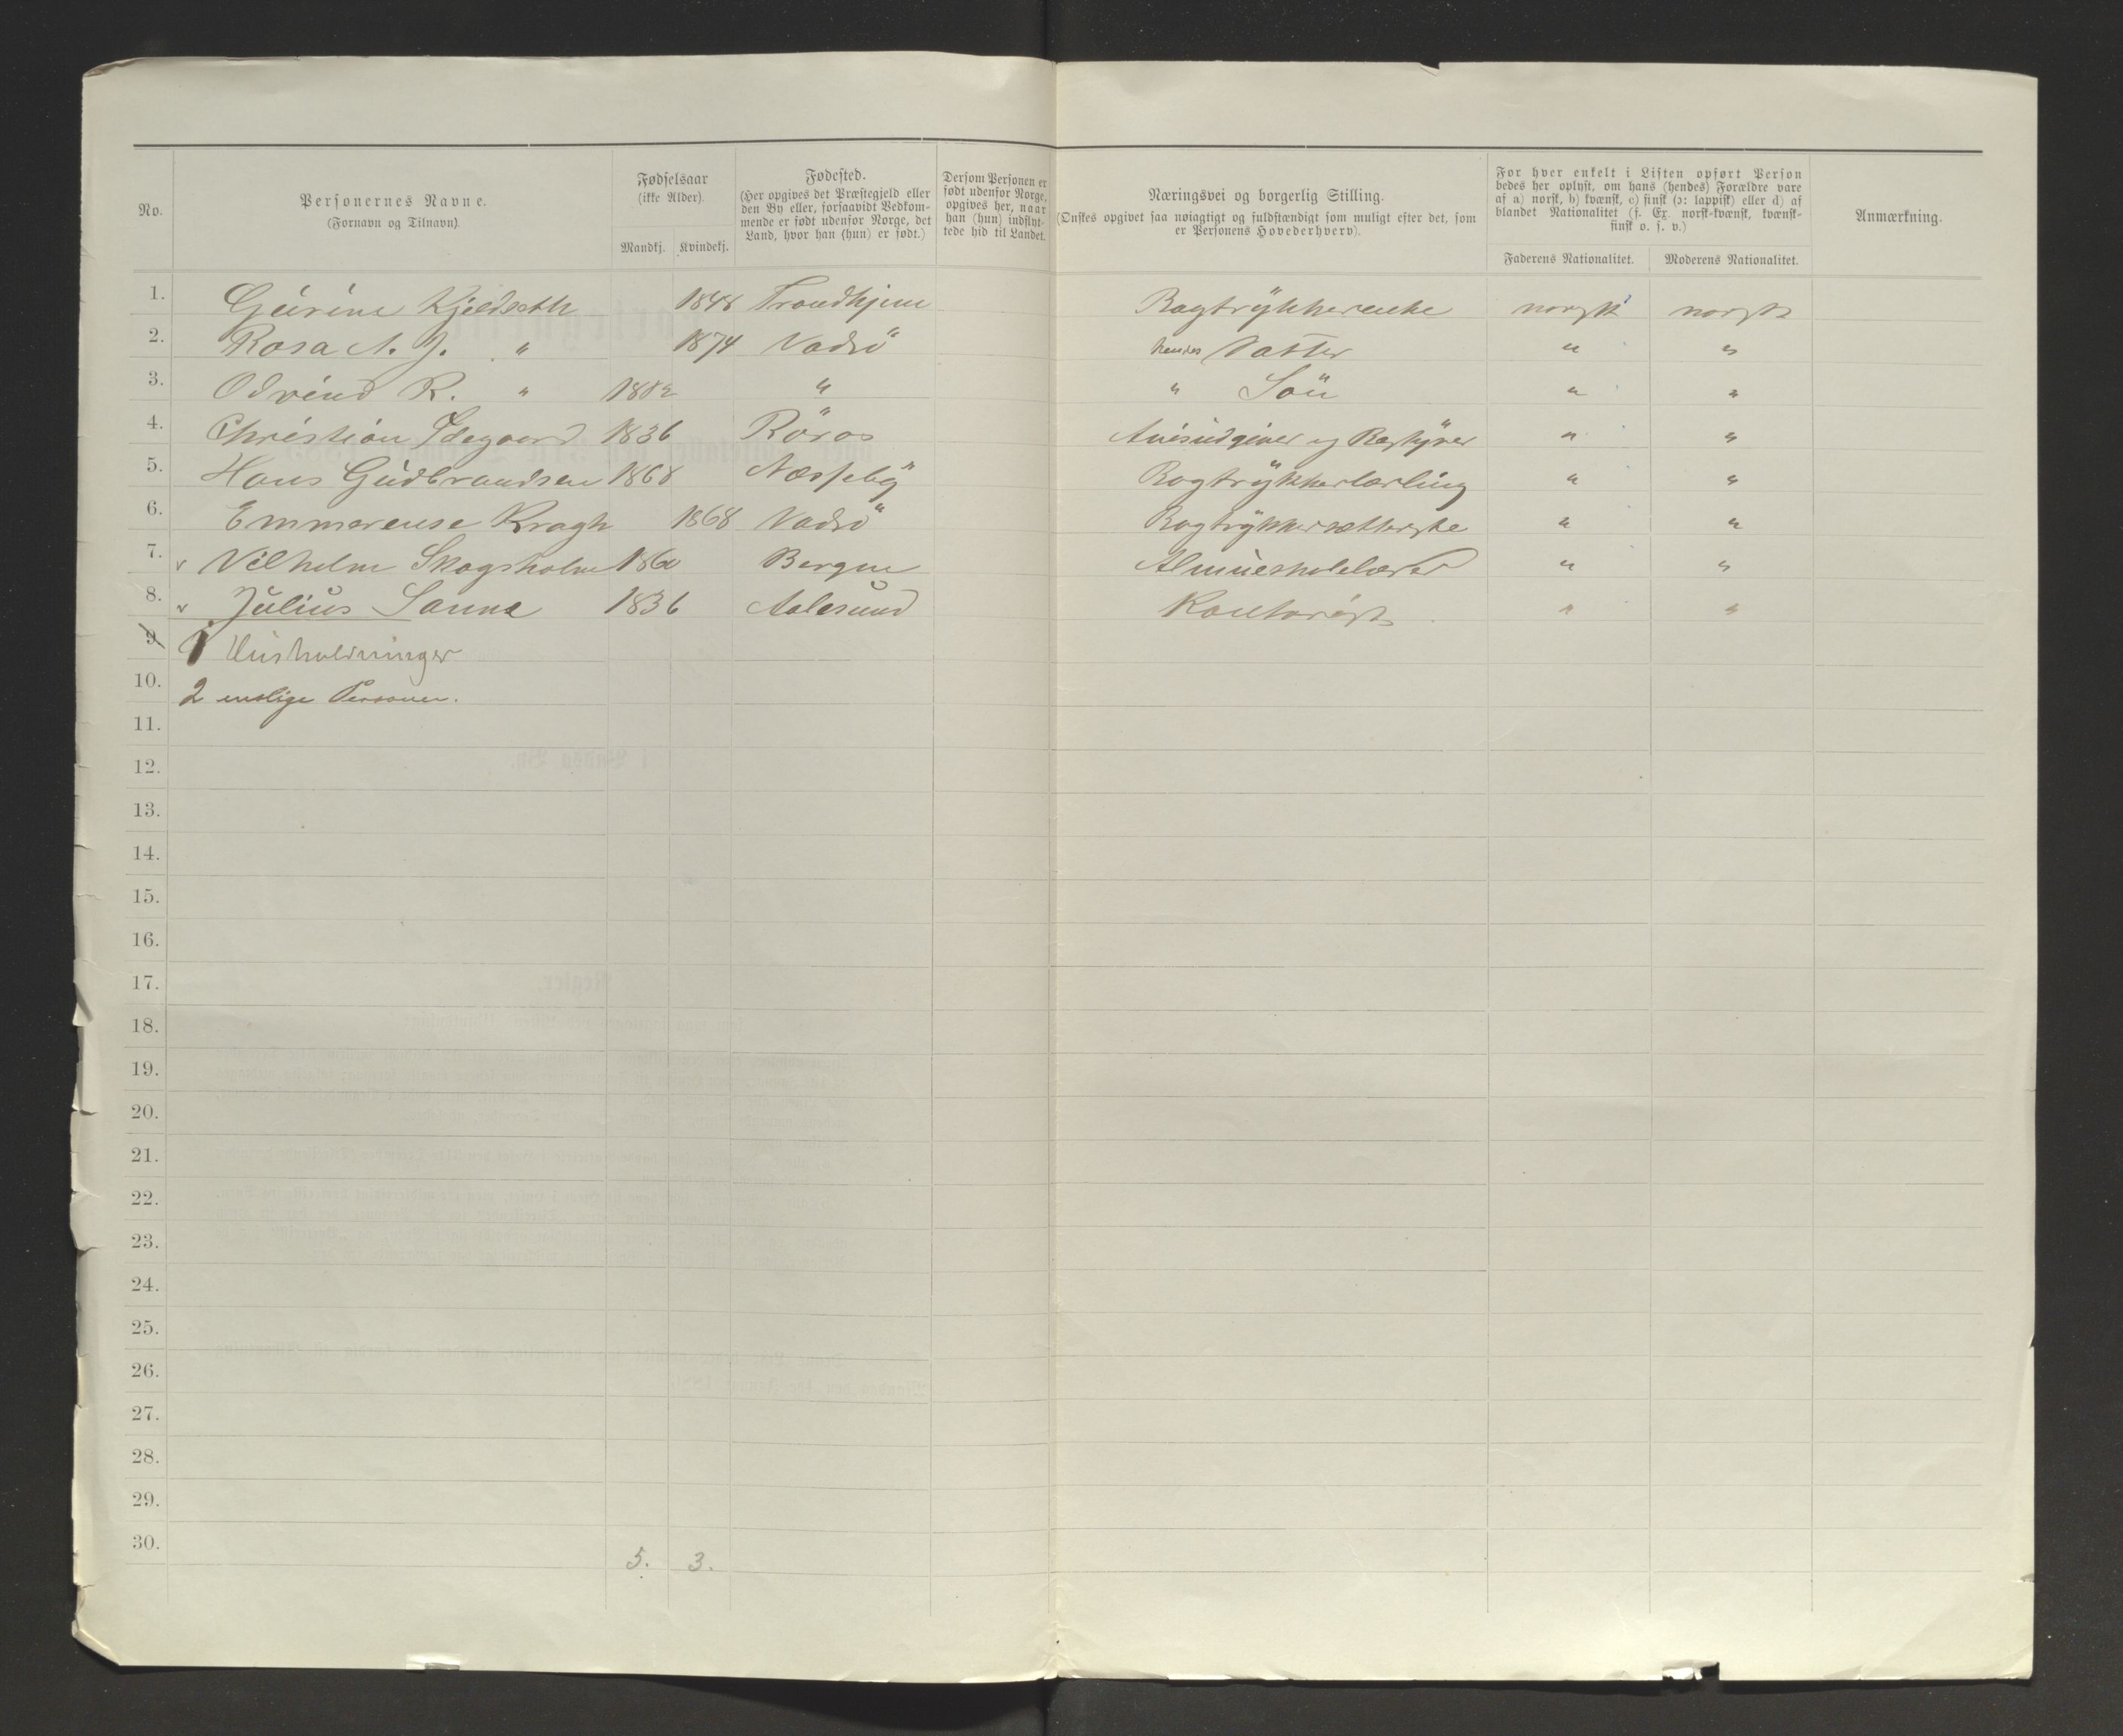 No.
Personernes Navne.
(Fornavn og Tilnavn).
Fødselsaar
(ikke Alder).
Mandkj. Kvindekj.
Fødested.
(Her opgives det Præstegjeld eller
den By eller, forsaavidt Vedkom-
mende er født udenfor Norge, det
Land, hvor han (hun) er født.)
Dersom Personen er
født udenfor Norge,
opgives her, naar
han (hun) indflyt-
tede hid til Landet.
Næringsvei og borgerlig Stilling.
(Ønskes opgivet saa nøiagtigt og fuldstændigt som muligt efter det, som
er Personens Hovederhverv).
For hver enkelt i Listen opført Person
bedes her oplyst, om hans (hendes) Forældre vare
af a) norsk, b) kvænsk, c) finsk (ɔ: lappisk) eller d) af
blandet Nationalitet (f. Ex. norsk-kvænsk, kvænsk-
finsk o. s. v.)
Faderens Nationalitet. Moderens Nationalitet.
Anmærkning.
1. Gurine Kjeldseth 1848 Trondhjem Bogtrykkerenke norsk norsk
2. Rosa A. J. " 1874 Vadsö hendes Datter " "
3. Odvind R. " 1882 " " Sön " "
4. Christian Ödegaard 1836 Röros Avisudgiver og Bestyrer " "
5. Hans Gudbrandsen 1868 Næsseby Bogtrykkerlærling " "
6. Emmerense Kragh 1868 Vadsö Bogtrykkersætterske " "
7. v Vilhelm Skogsholm 1860 Bergen Almueskolelærer " "
8. v Julius Sanne 1836 Aalesund Kontorist " "
9. 1 Husholdninger
10. 2 enslige Personer.
11.
12.
13.
14.
15.
16.
17.
18.
19.
20.
21.
22.
23.
24.
25.
26.
27.
28.
29.
30.
5. 3.